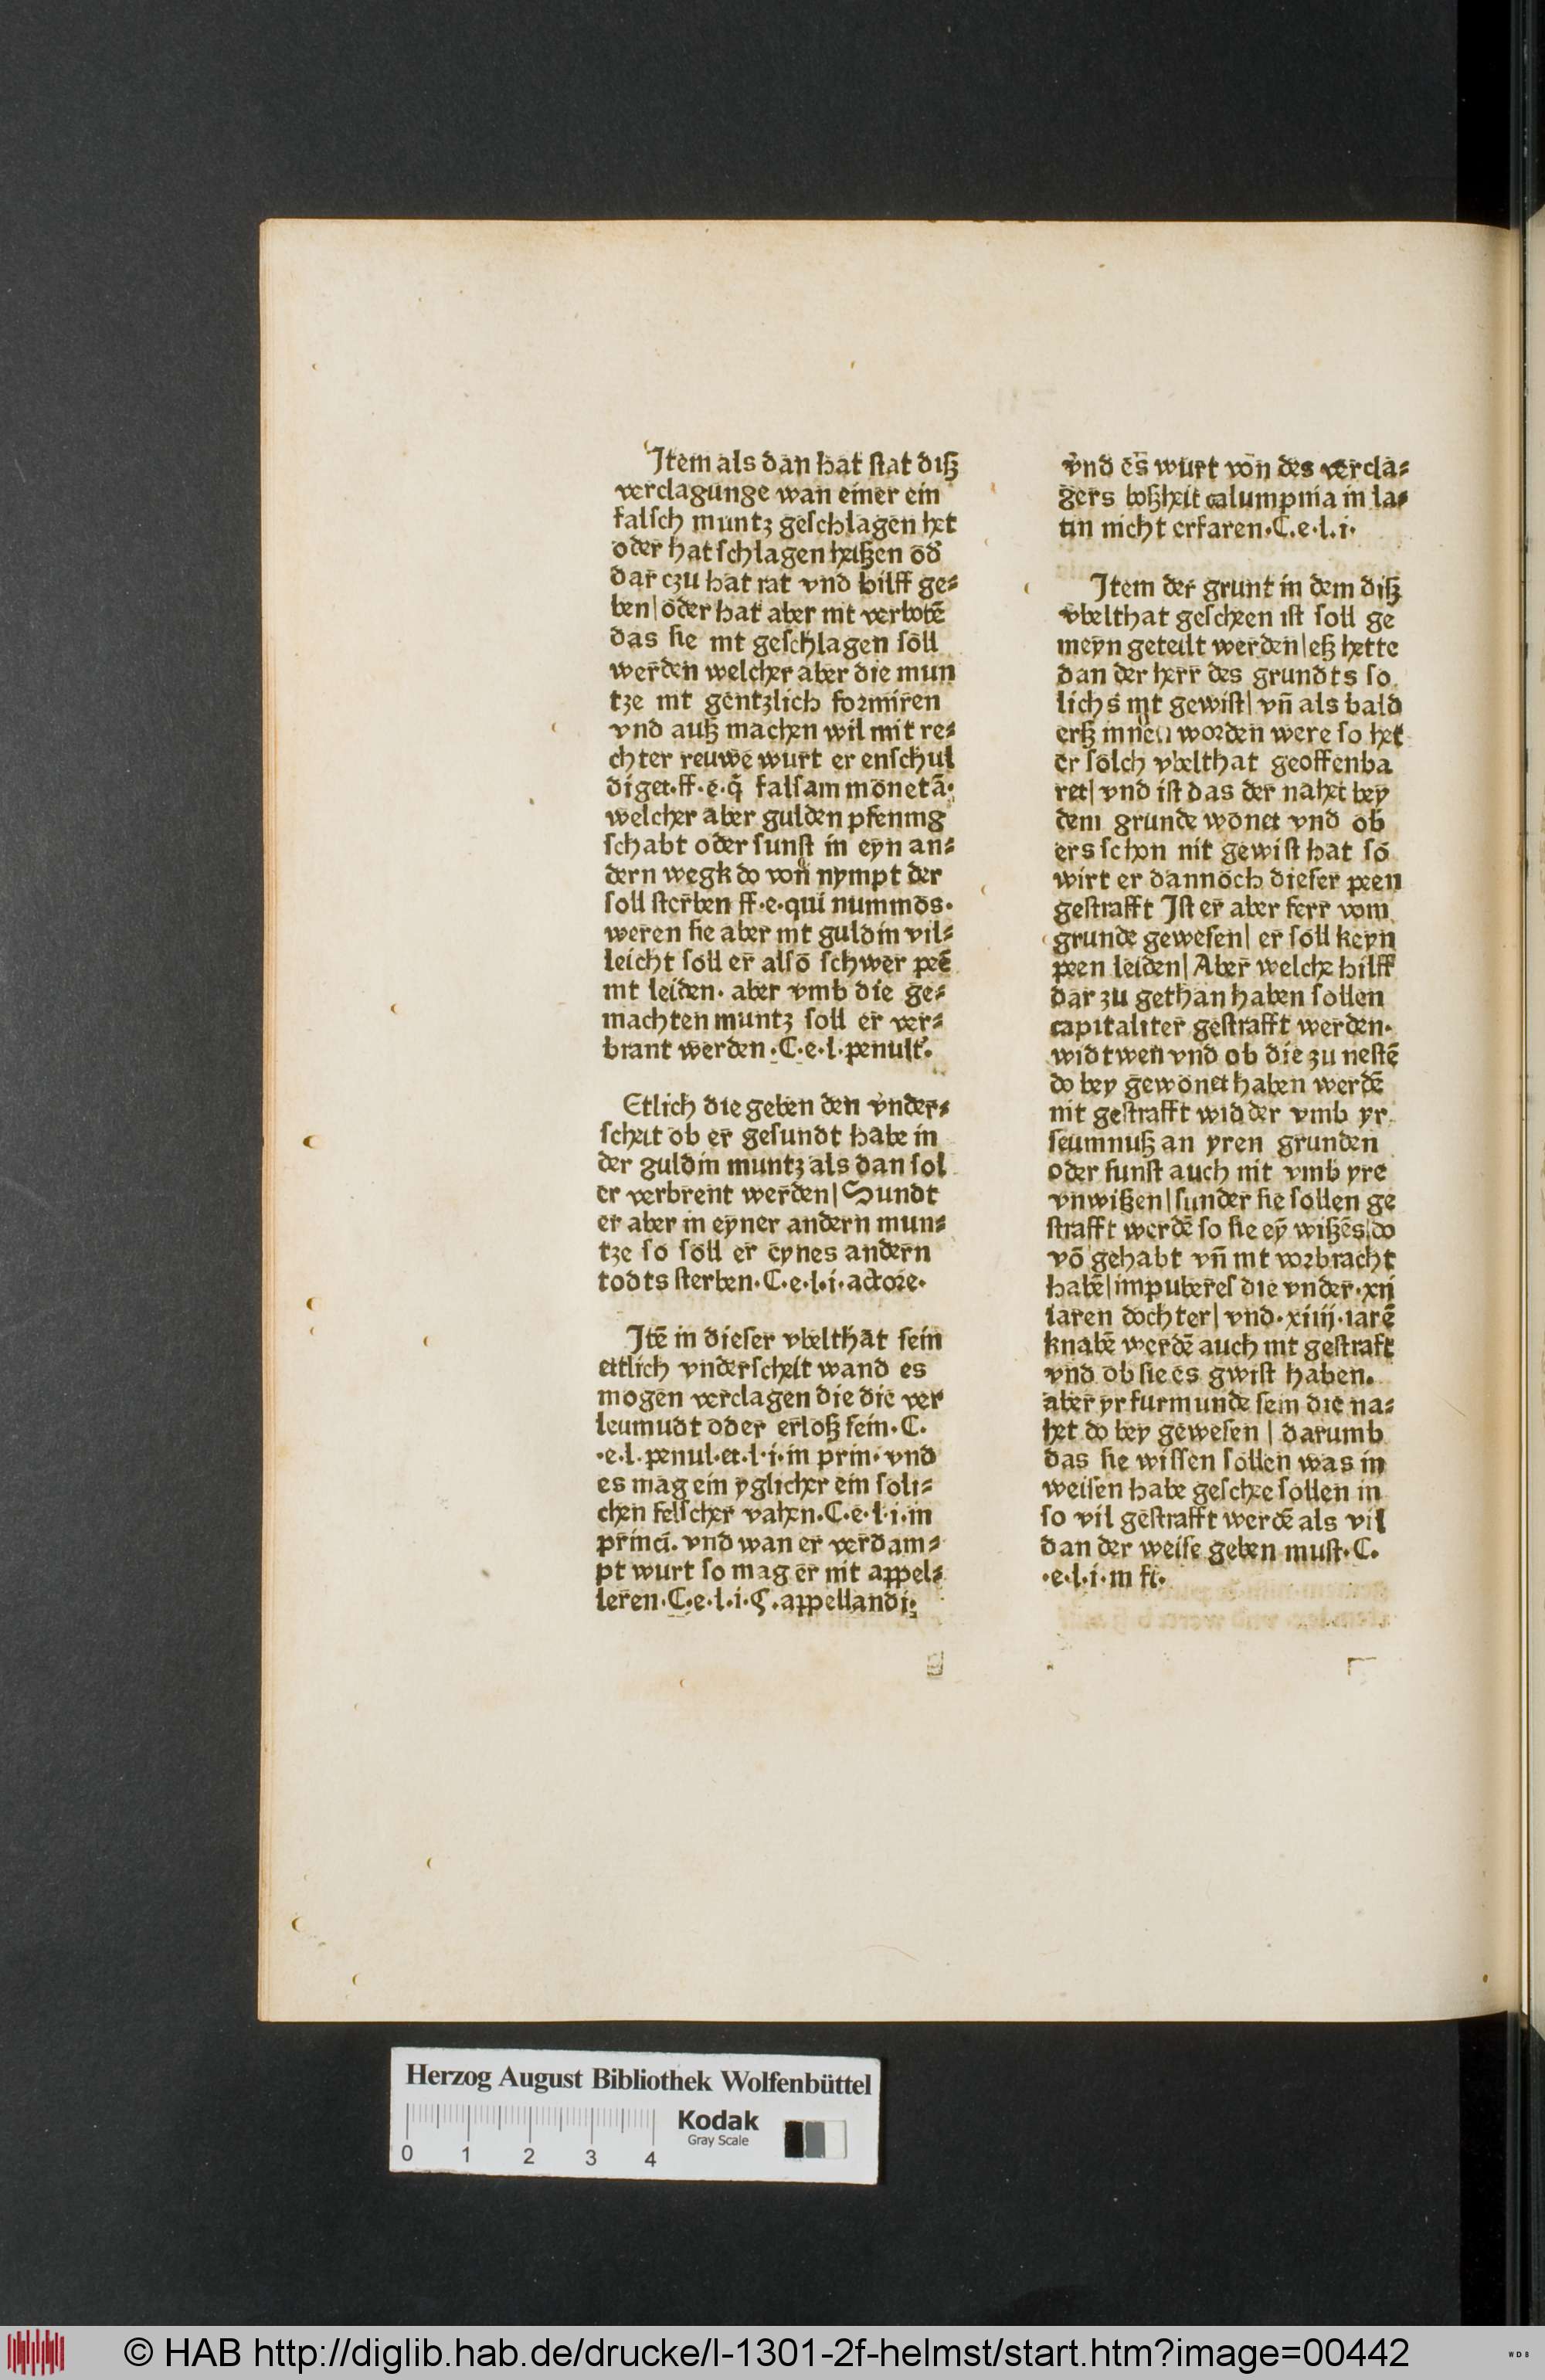 Jtem als dan hat ſtat diß
verclagunge wan einer ein
falſch muntz geſchlagen het
oder hat ſchlagen heißen od̄
dar czu hat rat vnd hilff ge⸗
ben| oder hat aber nit verbotē
das ſie nit geſchlagen ſoll
werden welcher aber die mun
tze nit gentzlich foꝛmiren
vnd auß machen wil mit re⸗
chter reuwe wurt er enſchul
diget·ff·e·q̄ falſam monetā·
welcher aber gulden pfennig
ſchabt oder ſunſt in eyn an⸗
dern wegk do von nympt der
ſoll ſterben ff·e·qui nummos·
weren ſie aber nit guldin vil⸗
leicht ſoll er alſo ſchwer peē
nit leiden· aber vmb die ge⸗
machten muntz ſoll er ver⸗
brant werden·C·e·l·penult̄·
Etlich die geben den vnder⸗
ſcheit ob er geſundt habe in
der guldin muntz als dan ſol
er verbrent werden| Sundt
er aber in eyner andern mun⸗
tze ſo ſoll er eynes andern
todts ſterben·C·e·l·i·actoꝛe·
Jtē in dieſer vbelthat ſein
ettlich vnderſcheit wand es
mogen verclagen die die ver
leumudt oder erloß ſein·C·
·e·l·penul·et·l·i·in prin· vnd
es mag ein yglicher ein ſoli⸗
chen felſcher vahen·C·e·l·i·in
princi̅· vnd wan er verdam⸗
pt wurt ſo mag er nit appel⸗
leren·C·e·l·i·§·appellandi·
vnd es wurt von des vercla⸗
gers boßheit calumpnia in la⸗
tin nicht erfaren·C·e·l·i·
Jtem der grunt in dem diß
vbelthat geſcheen iſt ſoll ge
meyn geteilt werden| eß hette
dan der herr des grundts ſo
lichs nit gewiſt| vn̄ als bald
erß innen woꝛden were ſo het
er ſolch vbelthat geoffenba
ret| vnd iſt das der nahet bey
dem grunde wonet vnd ob
ers ſchon nit gewiſt hat ſo
wirt er dannoch dieſer peen
geſtrafft Jſt er aber ferr vom
grunde geweſen| er ſoll keyn
peen leiden| Aber welche hilff
dar zu gethan haben ſollen
capitaliter geſtrafft werden·
widtwen vnd ob die zu neſtē
do bey gewonet haben werdē
nit geſtrafft widder vmb yr
ſeumnuß an yren grunden
oder ſunſt auch nit vmb yre
vnwißen| ſunder ſie ſollen ge
ſtrafft werdē ſo ſie eȳ wißēs|do
vō gehabt vn̄ nit voꝛbracht
habē| impuberes die vnder·xij
iaren dochter| vnd·xiiij·iarē
knabē werdē auch nit geſtraft
vnd ob ſie es gwiſt haben·
aber yr furmunde ſein die na⸗
het do bey geweſen| darumb
das ſie wiſſen ſollen was in
weiſen habe geſchee ſollen in
ſo vil geſtrafft werdē als vil
dan der weiſe geben muſt·C·
·e·l·i·in fi·
Herzog August Bibliothek Wolfenbüttel
Kodak
Gray Scale
0 1 2 3 4
© HAB http://diglib.hab.de/drucke/l-1301-2f-helmst/start.htm?image=00442
WDB